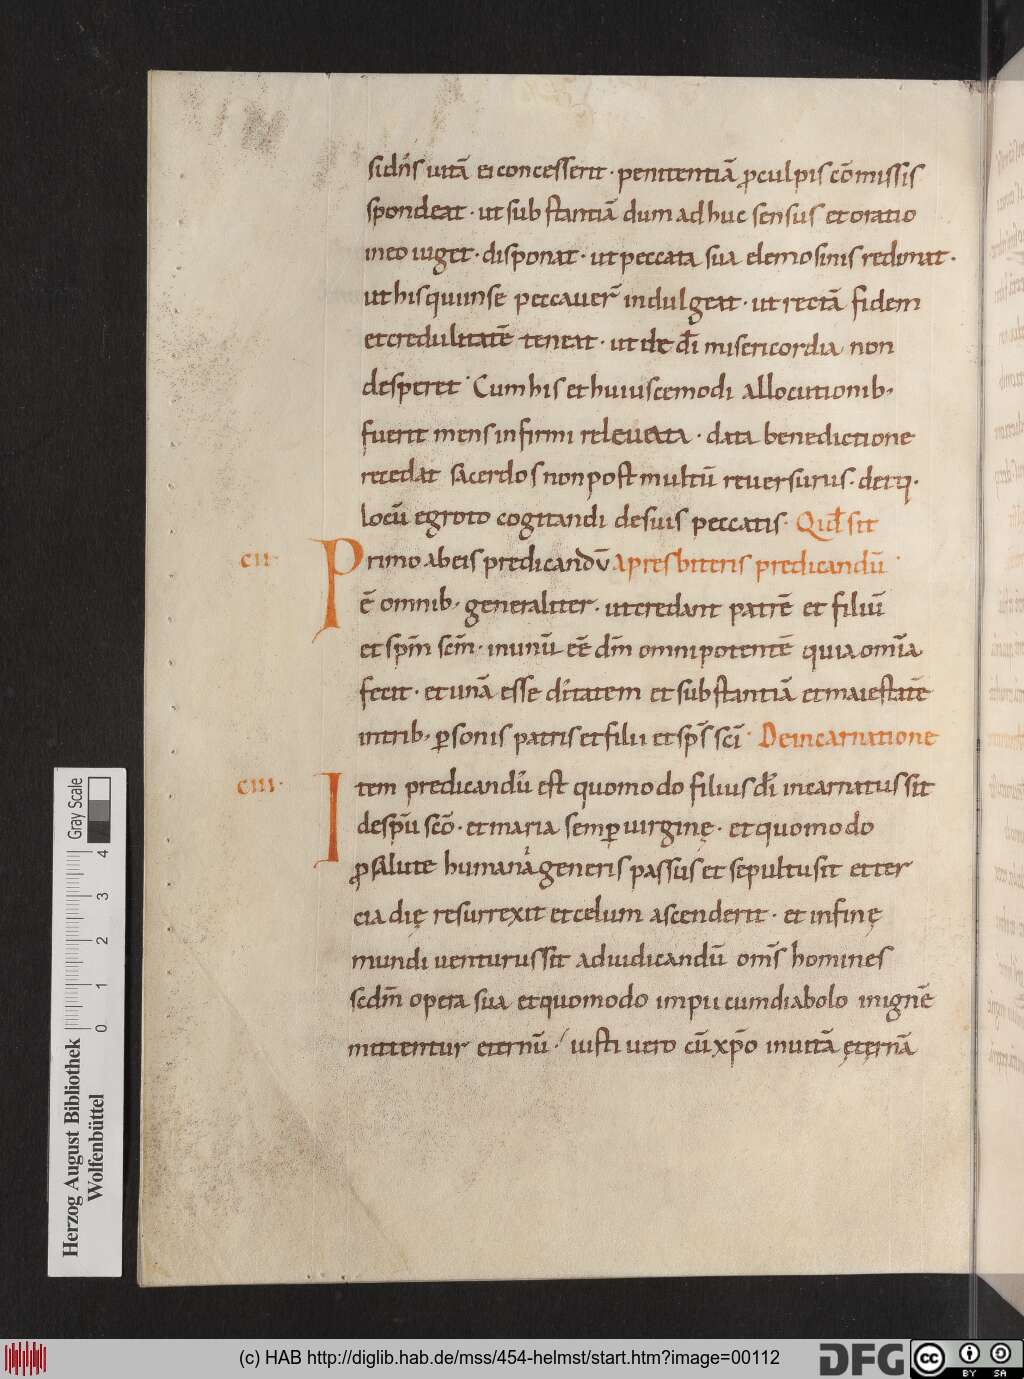 sidn̄s uitā ei concesserit · penitentiā ꝓculpis cōmissis
spondeat · ut substantiā dum adhuc sensus et oratio
in eo uiget · disponat · ut peccata sua elemosinis redimat ·
ut his qui in se peccauer̄ indulgeat · ut rectā fidem
et credulitatē teneat · ut de dī misericordia non
desperet · Cum his et huiuscemodi allocutionib·
fuerit mens infirmi releuata · data benedictione
recedat sacerdos non post multū reuersurus · detq·
locū egroto cogitandi de suis peccatis · Quid sit
cii · Primo ab eis predicandū a presbiteris predicandū ·
ē omnib· generaliter · ut credant patrē et filiū
et spm̄ scm̄ · in unū eē dm̄ omnipotentē quia om̄ia
fecit · et unā esse ditatem et substantiā et maiestatē
in trib· ꝑsonis patris et filii et sps̄ sci · De incarnatione
ciii · Item predicandū est quomodo filius dī incarnatus sit
de spū scō · et maria semꝑ uirginę · et quomodo
ꝓ salute humani generis passus et sepultus sit et ter
cia dię resurrexit et celum ascenderit · et in finę
mundi uenturus sit ad iudicandū om̄s homines
scdm̄ opera sua et quomodo impii cum diabolo in ignē
mittentur eternū · iusti uero cū xp̄o in uitā ęternā
Herzog August Bibliothek
Wolfenbüttel
0 1 2 3 4
Gray Scale
(c) HAB http://diglib.hab.de/mss/454-helmst/start.htm?image=00112
DFG
cc BY SA